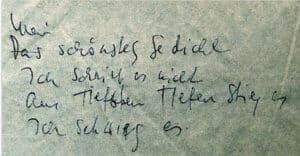 Mein
Das schönste Gedicht
Ich schrieb es nicht
Aus Tiefsten Tiefen Stieg es
Ich schwieg es.